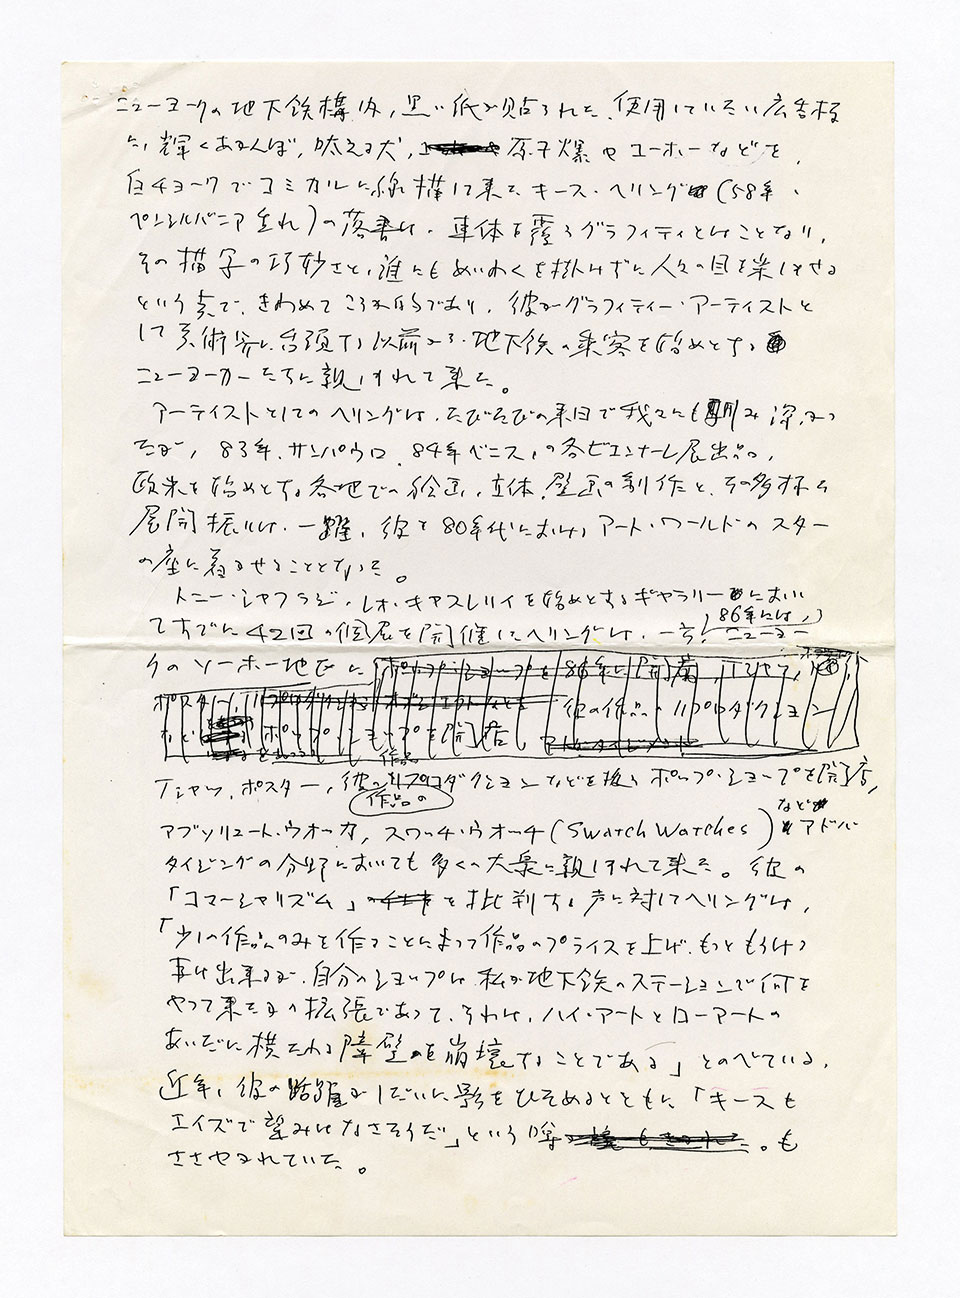 ニューヨークの地下鉄構内，黒い紙が貼られた，使用していない広告板
に，輝くあかんぼ，吠える犬，原子爆やユーホーなどを，
白チョークでコミカルに線描して来た キース・ヘリング（58年，
ペンシルバニア生れ）の落書は，車体を覆うグラフィティとはことなり，
その描写の巧妙さと，誰にもめいわくを掛けずに人々の目を楽しませる
という点で，きわめて 的であり，彼がグラフィティー・アーティストと
して 術界に台頭する以前から 地下鉄の乗客を始めとする
ニューヨーカーたちに親しまれて来た。
アーティストとしてのヘリングは，たびたびの来日で我々にも馴み深かっ
たが，83年，サンパウロ，84年ベニス，の各ビエンナーレ展出品，
欧米を始めとする各地での絵画，立体，壁画の制作と，その多样な
展開振りは，一躍，彼を80年代におけるアート・ワールドのスター
の座に着かせることとなった。
トニー・シャフラジ，レオ・キャステリイを始めとするギャラリーにおい
てすでに42回の個展を開催したヘリングは，一方，86年には，ニューヨー
クのソーホー地区に ポップ・ショップを 86年に開店，Tシャツ，
ポスター，リプロダクション オブジェクトなど 彼の作品のリプロダクション
など ポップ・ショップを開店
Tシャツ，ポスター，彼の作品のリプロダクションなどを扱う ポップ・ショップを開店，
アブソリュート・ウオッカ，スウォッチ・ウオーチ（Swatch Watches）などアドバ
タイジングの分野においても多くの大衆に親しまれて来た。彼の
「コマーシャリズム」を批判する声に対してヘリングは，
「少しの作品のみを作ることによって作品のプライスを上げ，もっともうける
事は出来るが，自分のショップは私が地下鉄のステーションで何を
やって来たかの拡張であって，それは，ハイ・アートとローアートの
あいだに横たわる障壁を崩壊することである」とのべている，
近年，彼の活躍がしだいに影をひそめるとともに「キースも
エイズで望みはなさそうだ」という噂も
ささやかれていた。